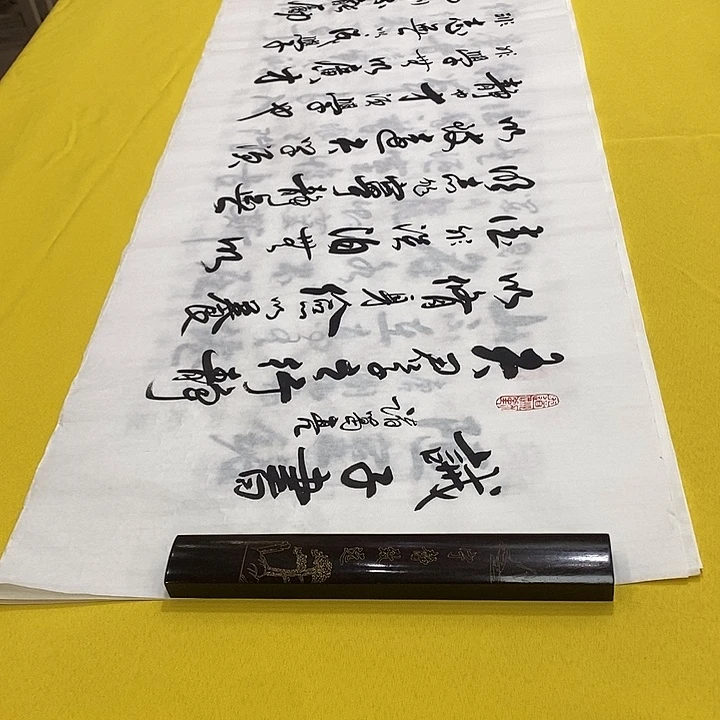 誡子書
諸葛亮
夫君子之行靜
以脩身儉以養
德非澹泊無以
明志非寧靜無
以致遠夫學須
靜也才須學也
非學無以廣才
非志無以成學
能勵
寧靜致遠